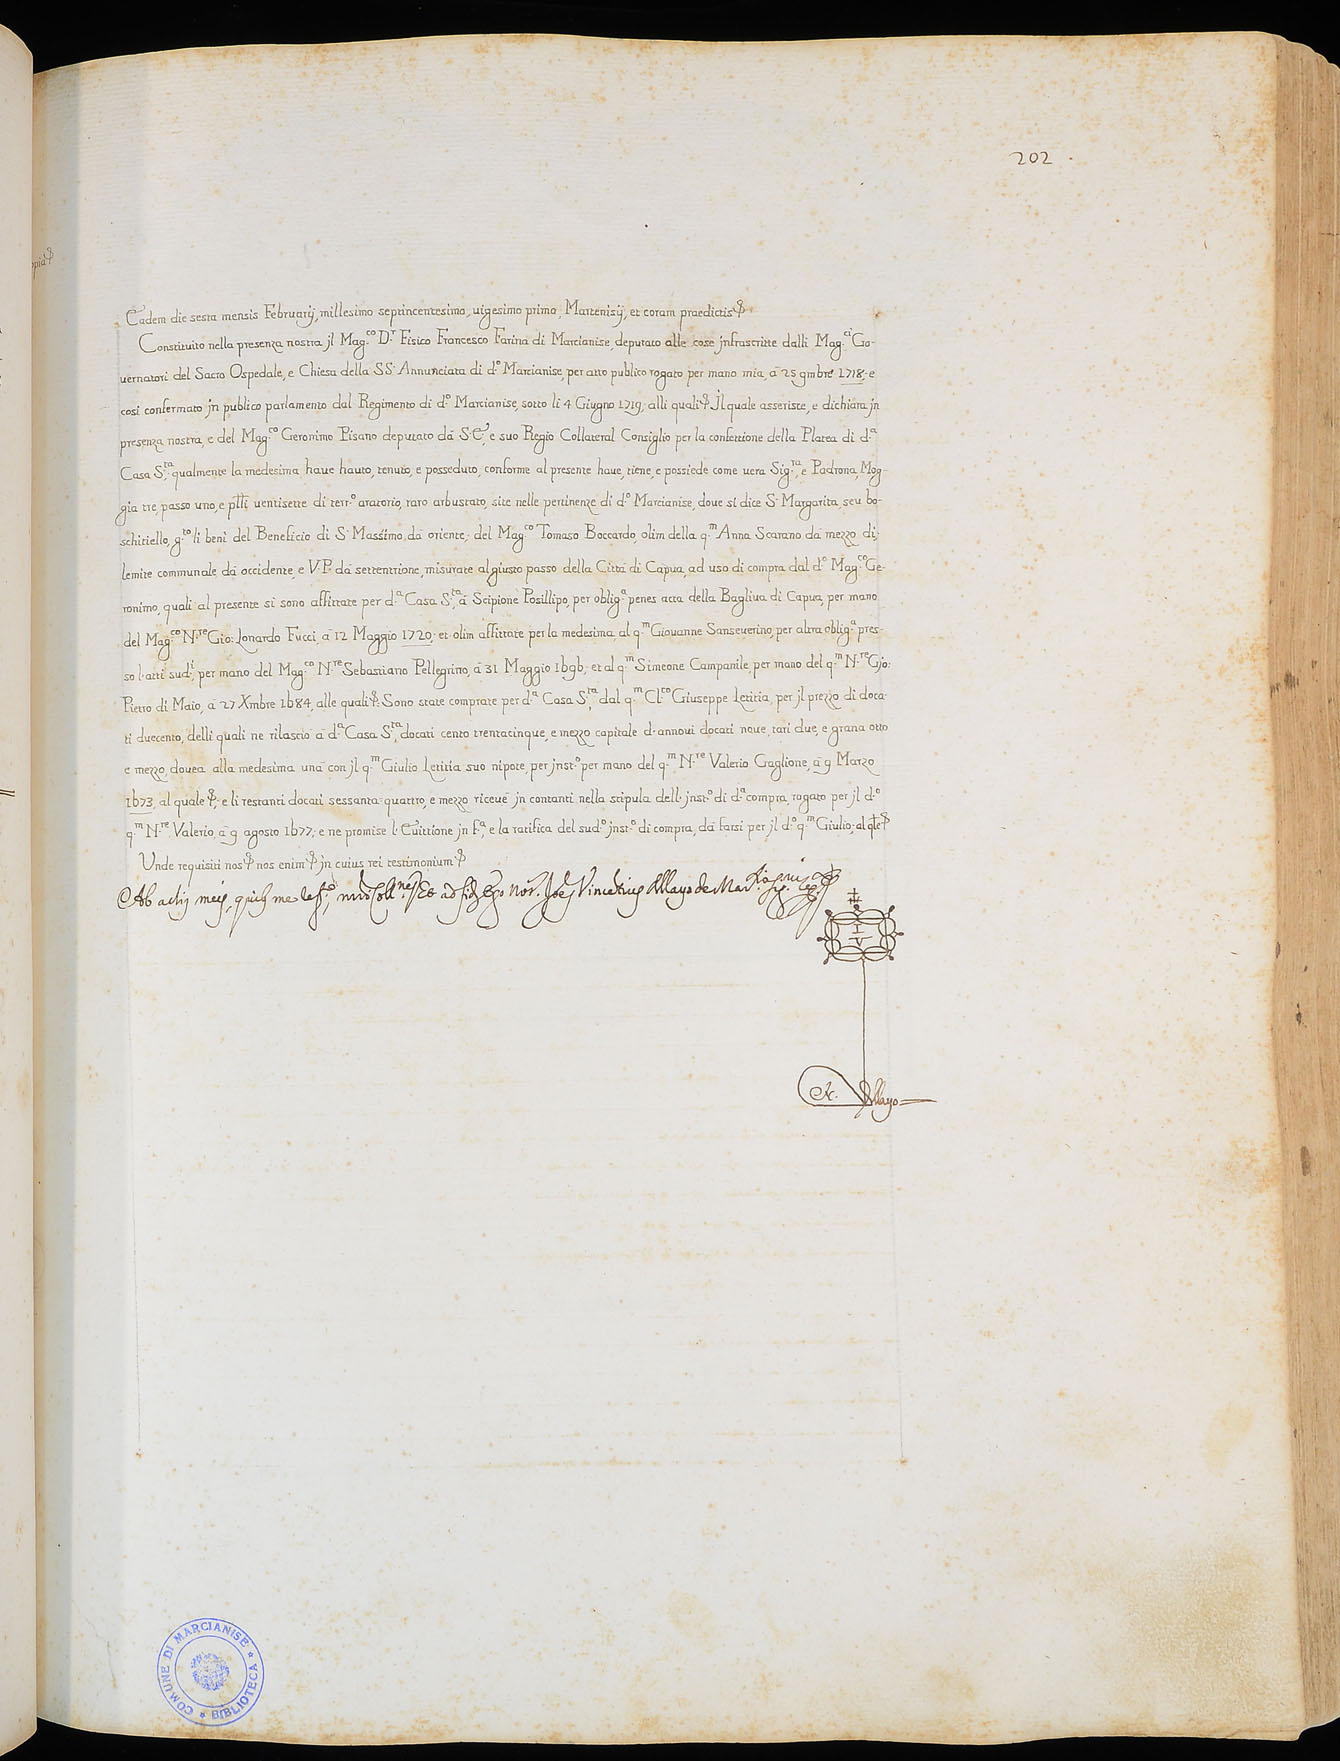 202
Eadem die sexta mensis Februarij, millesimo septincentesimo, uigesimo primo, Martenisij, et coram praedictis
Constituito nella presenza nostra jl Mag.co D.r Fisico Francesco Farina di Marcianise, deputato alle cose jnfrascritte dalli Mag.ci Go-
uernatori del Sacro Ospedale, e Chiesa della SS. Annunciata di d.o Marcianise, per atto publico rogato per mano mia, à 25 9mbre 1718, e
cosi confermato jn publico parlamento dal Regimento di d.o Marcianise, sotto li 4 Giugno 1719, alli quali Jl quale asserisce, e dichiara jn
presenza nostra, e del Mag.co Geronimo Pisano deputato dà S.E., e suo Regio Collateral Consiglio per la confettione della Platea di d.a
Casa S.ta, qualmente la medesima haue hauto, tenuto, e posseduto, conforme al presente haue, tiene, e possiede come uera Sig.ra, e Padrona, Mog-
gia tre, passo uno, e p̃tti uentisette di terr.o aratorio, raro arbustato, site nelle pertinenze di d.o Marcianise, doue si dice S. Margarita, seu bo-
schitiello, g.to li beni del Beneficio di S. Massimo, dà oriente, del Mag.co Tomaso Boccardo, olim della q.m Anna Scarano dà mezzo di,
lemite communale dà occidente, e V.P. dà settentrione, misurate al giusto passo della Città di Capua, ad uso di compra dal d.o Mag.co Ge-
ronimo, quali al presente si sono affittate per d.a Casa S.ta, à Scipione Posillipo, per oblig.a penes acta della Bagliua di Capua, per mano
del Mag.co N.re Gio: Lonardo Fucci, à 12 Maggio 1720, et olim affittate per la medesima al q.m Giouanne Sanseuerino, per altra oblig.a pres-
so l'atti sud.i, per mano del Mag.co N.re Sebastiano Pellegrino, à 31 Maggio 1696, et al q.m Simeone Campanile, per mano del q.m N.re Gjo:
Pietro di Maio, à 27 Xmbre 1684, alle quali Sono state comprate per d.a Casa S.ta, dal q.m Cl.co Giuseppe Letitia, per jl prezzo di doca-
ti duecento, delli quali ne rilasciò à d.a Casa S.ta, docati cento trentacinque, e mezzo capitale d'annoui docati noue, tarì due, e grana otto
e mezzo, douea alla medesima unà con jl q.m Giulio Letitia suo nipote, per jnst.o per mano del q.m N.re Valerio Gaglione, à 9 Marzo
1673, al quale, e li restanti docati sessanta quattro, e mezzo riceuè jn contanti nella stipula dell'jnst.o di d.a compra, rogato per jl d.o
q.m N.re Valerio, à 9 agosto 1677, e ne promise l'Euittione jn f.a, e la ratifica del sud.o jnst.o di compra, dà farsi per jl d.o q.m Giulio, al q̃le
Unde requisiti nos nos enim jn cuius rei testimonium
Ab actis meis, Ego Not. Vincentius Allayo de
I V
N. Allayo
COMUNE DI MARCIANISE * BIBLIOTECA *